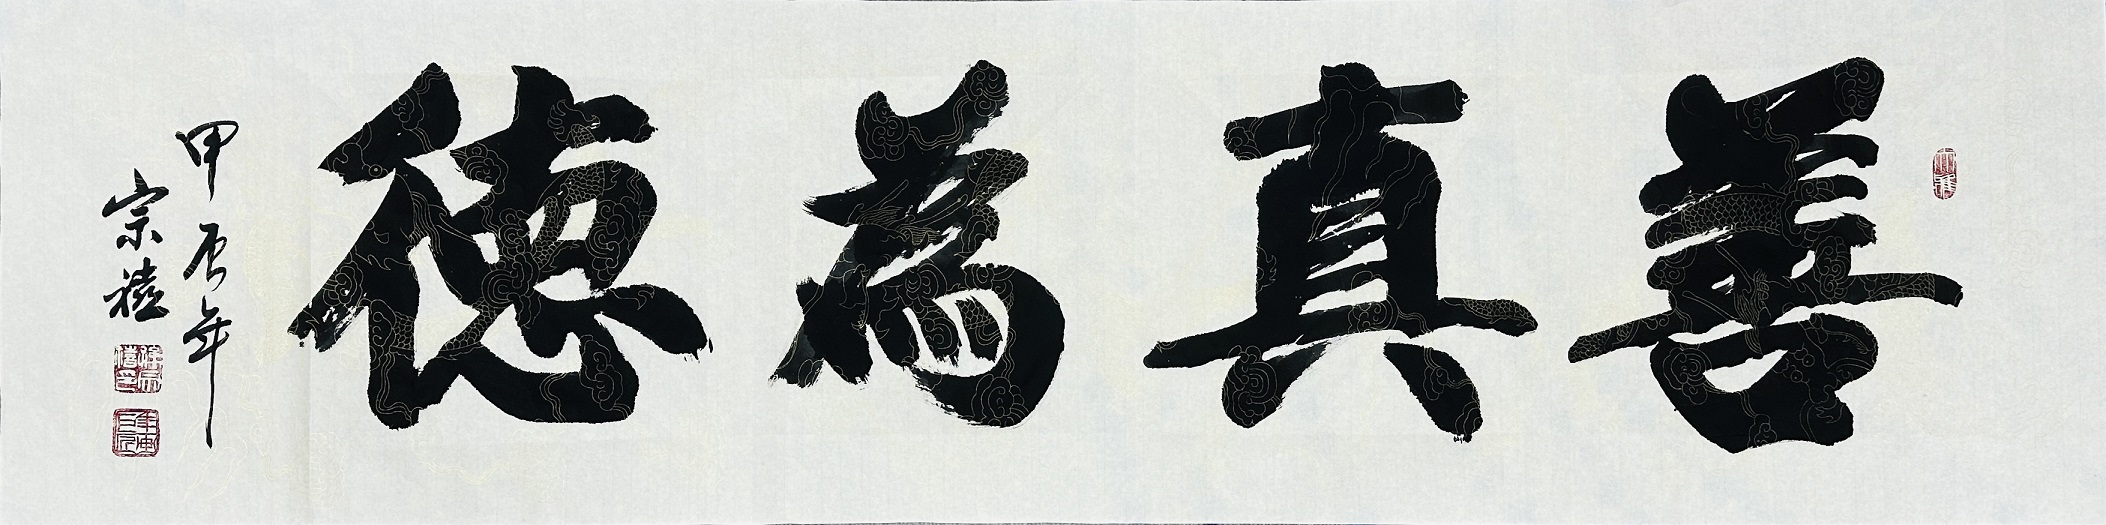 善真為德
甲辰年
宗禧